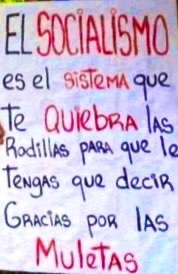 EL SOCIALISMO
es el sistema que
te QUIEBRA LAS
Rodillas PARA que le
Tengas que decir
GRACIAS POR LAS
Muletas